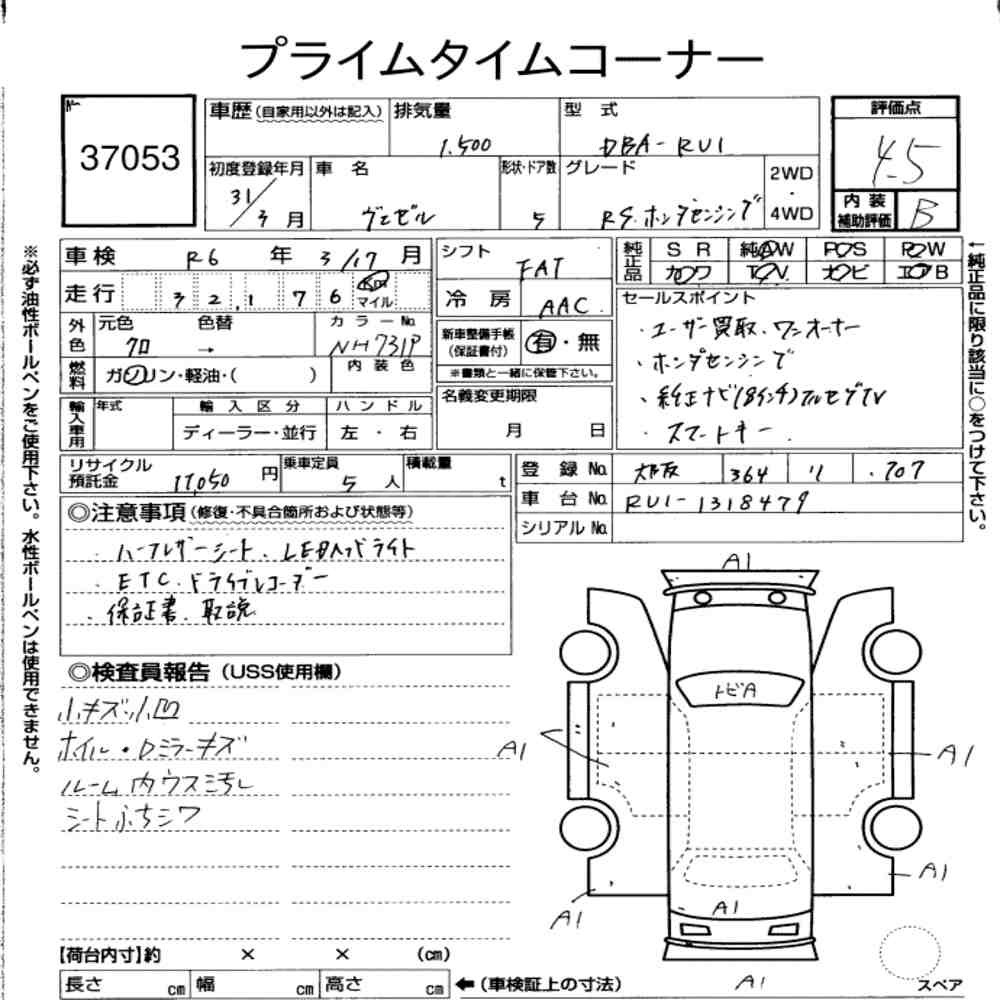 プライムタイムコーナー
No.
37053
車歴(自家用以外は記入) 排気量 1.500 型式 DBA-RU1
初度登録年月 31/3月 車名 ヴェゼル 形状・ドア数 5 グレード RS.ホンダセンシング 2WD・4WD
評価点 4.5
内装補助評価 B
車検 R6年 3/17月
走行 3 2,1 7 6 Km マイル
外色 元色 クロ 色替 → カラーNo. NH731P
燃料 ガソリン・軽油・( ) 内装色
輸入車用 年式 輸入区分 ディーラー・並行 ハンドル 左・右
シフト FAT
冷房 AAC
新車整備手帳(保証書付) 有・無
※書類と一緒に保管下さい。
名義変更期限 月 日
純正品 SR 純AW PS PW
カワ TV ナビ エアB
セールスポイント
・ユーザー買取.ワンオーナー
・ホンダセンシング
・純正ナビ(8インチ)フルセグTV
・スマートキー
リサイクル預託金 17,050円 乗車定員 5人 積載量 t
登録No. 大阪 364 り .707
車台No. RU1-1318479
シリアルNo.
◎注意事項(修復・不具合箇所および状態等)
・ハーフレザーシート.LEDヘッドライト
・ETC.ドライブレコーダー
・保証書.取説
◎検査員報告(USS使用欄)
小キズ小凹
ホイル・Dミラーキズ
ルーム内ウス汚レ
シートふちシワ
A1
トビA
A1
A1
A1
A1
A1
A1
スペア
【荷台内寸】約 × × (cm)
長さ cm 幅 cm 高さ cm ←(車検証上の寸法)
※必ず油性ボールペンをご使用下さい。水性ボールペンは使用できません。
←純正品に限り該当に○をつけて下さい。